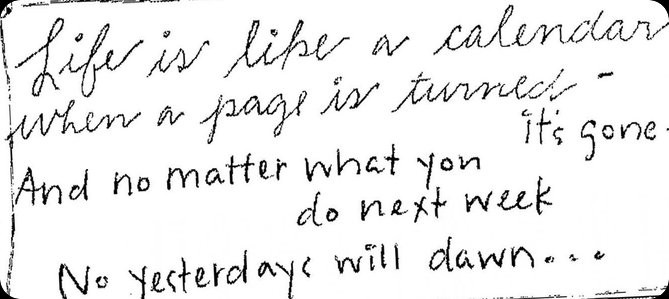 Life is like a calendar
when a page is turned -
it's gone.
And no matter what you
do next week
No yesterdays will dawn...